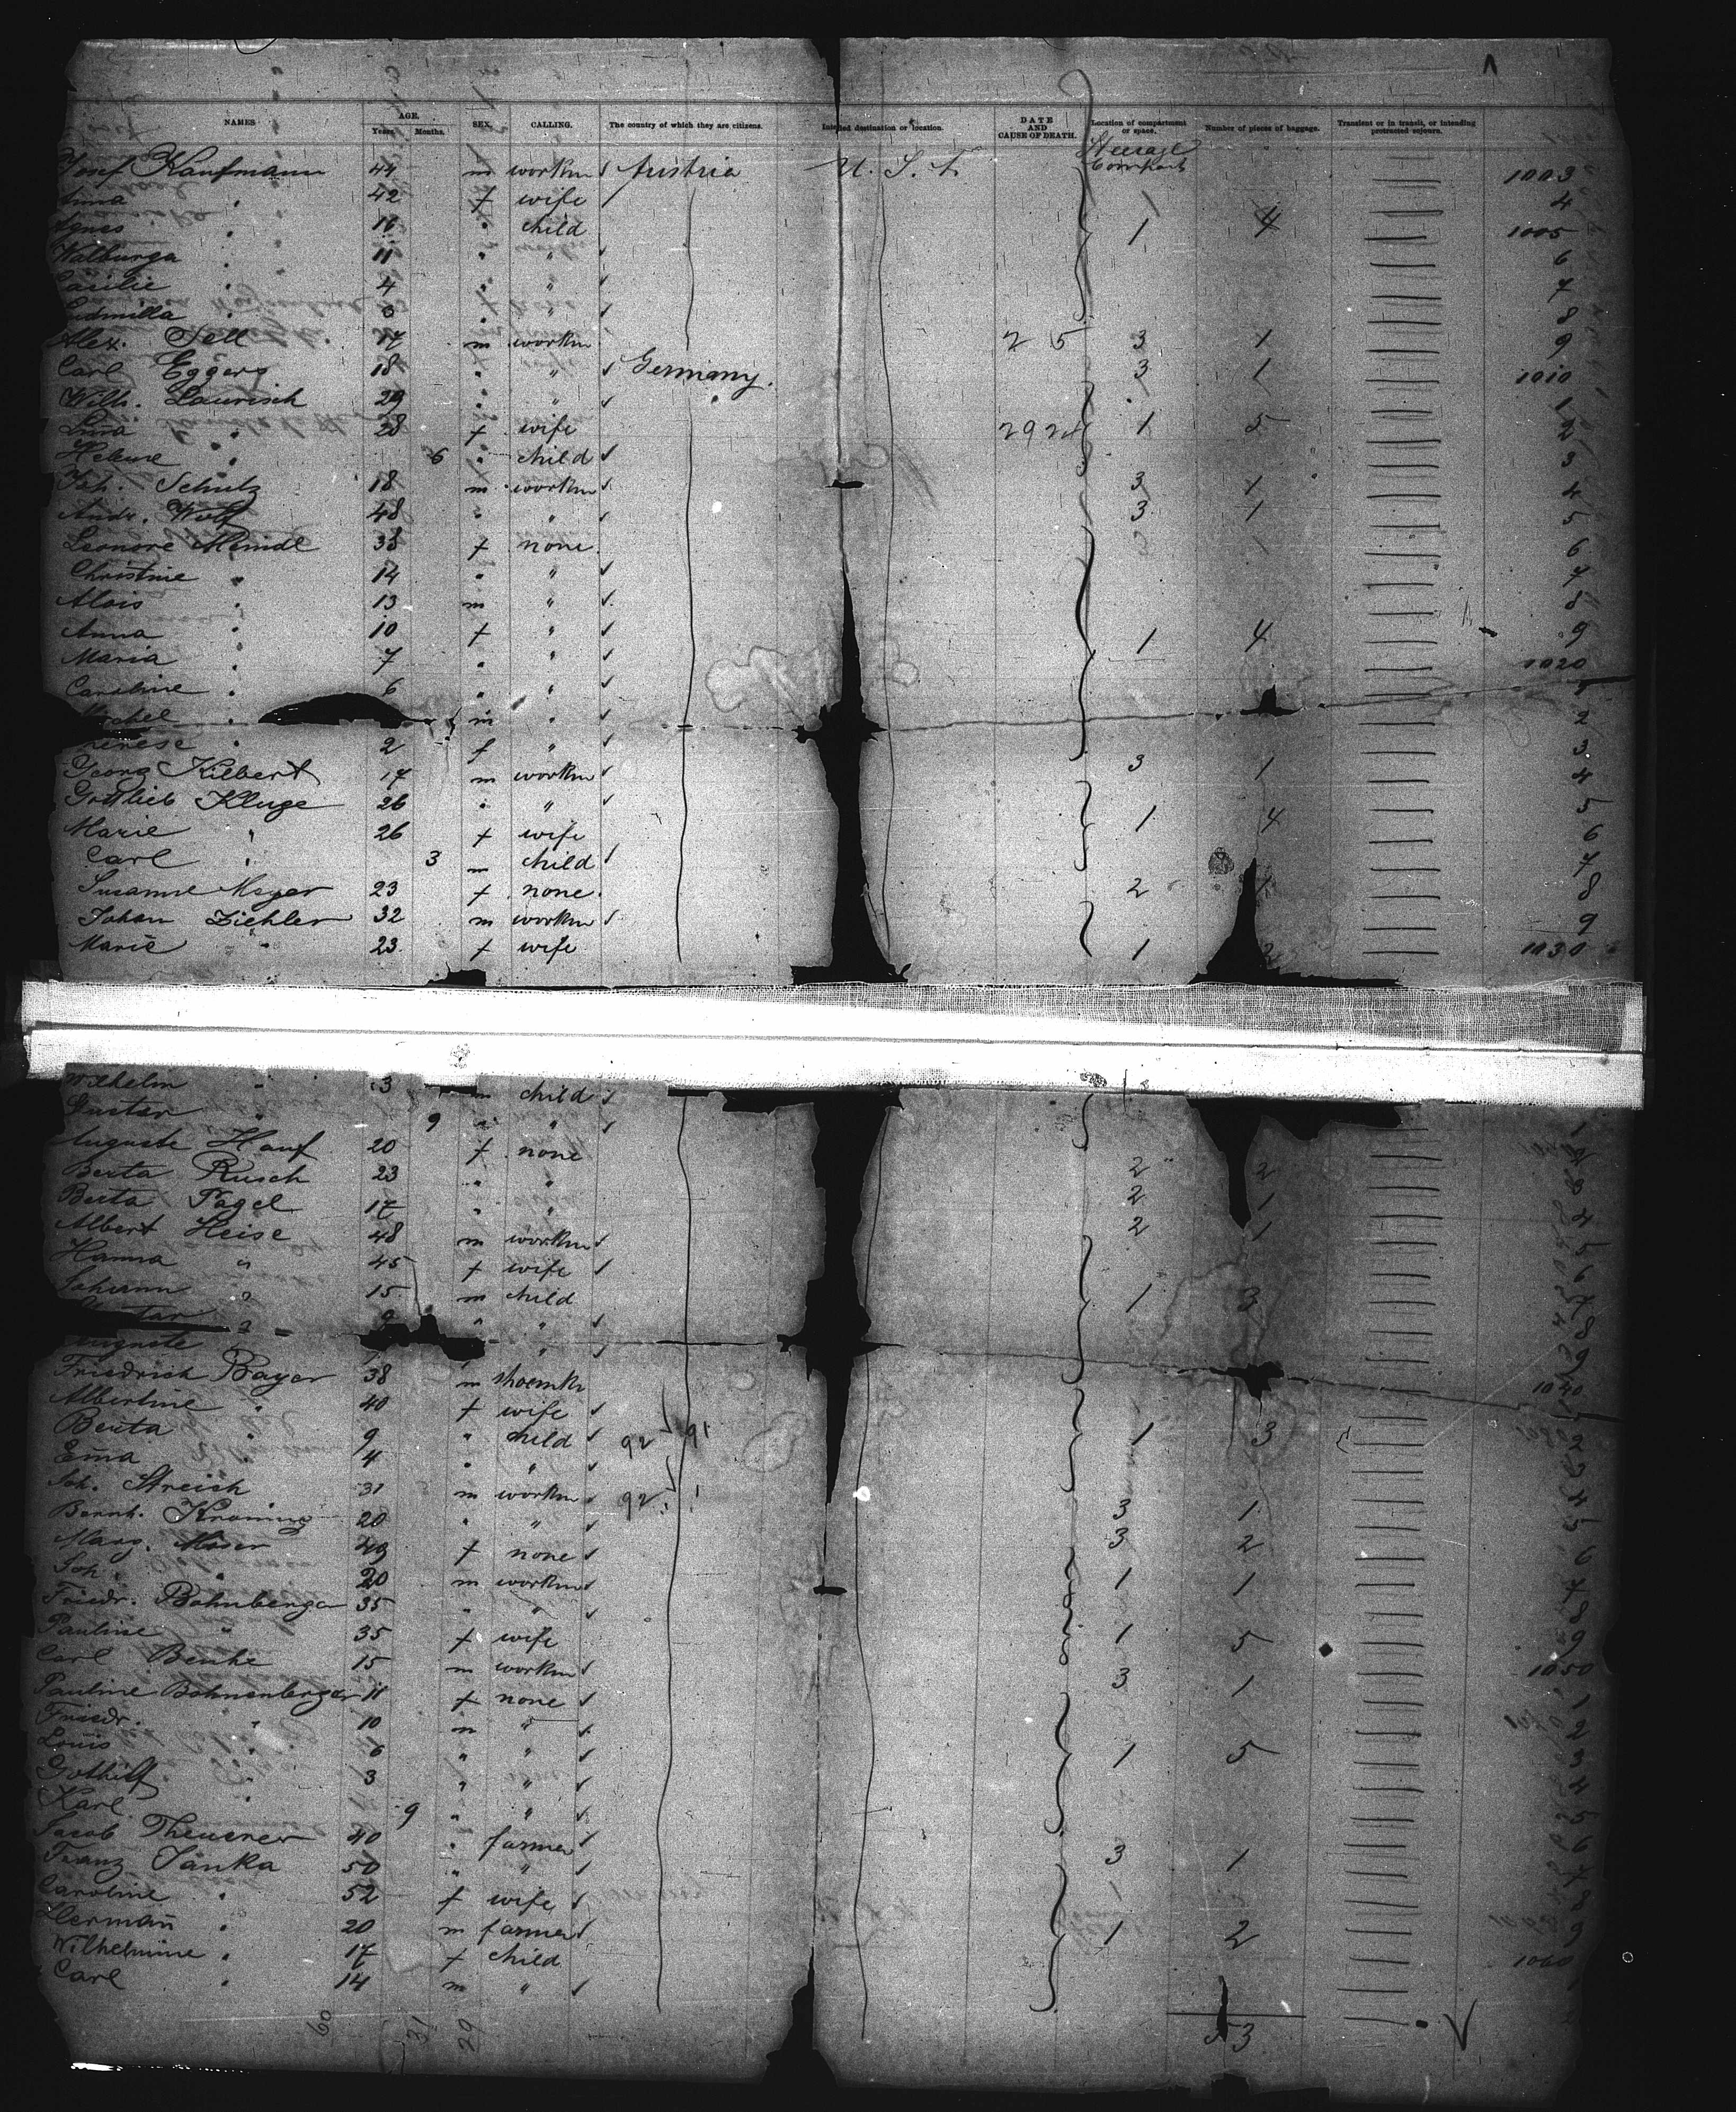 NAMES AGE. Years. Months. SEX. CALLING. The country of which they are citizens. Intended destination or location. DATE AND CAUSE OF DEATH. Location of compartment or space. Number of pieces of baggage. Transient or in transit, or intending protracted sojourn.
Steerage
Josef Kaufmann 44 m workm Austria U. S. A. Compart 1003
Anna " 42 f wife 4
Agnes " 16 " child 1 4 1005
Walburga " 11 " " 6
Cäcilie " 4 " " 7
Ludmilla " " " 8
Alex. Sell 17 m workm 2 5 3 1 9
Carl Eggers 18 " " Germany. 3 1 1010
Wilh. Laurisch 29 " " 1
Lina " 28 f wife 29 1 5 2
Helene " 6 " child 3
Joh. Schulz 18 m workm 3 1 4
Andr. Wolf 48 " " 3 1 5
Leonore Meindl 38 f none 6
Christine " 14 " " 7
Alois " 13 m " 8
Anna " 10 f " 1 4 9
Maria " 7 " " 1020
Caroline " 6 " " 1
" m " 2
Therese " 2 f " 3
Georg Kilbert 17 m workm 3 1 4
Gottlieb Kluge 26 " " 1 4 5
Marie " 26 f wife 6
Carl " 3 m child 7
Susanne Meyer 23 f none 2 8
Johan Ziehler 32 m workm 9
Marie " 23 f wife 1 2 1030
Wilhelm " 3 m child
Gustav " 9 " " 1
Auguste Hauf 20 f none 2 2
Berta Rusch 23 " " 2 1 3
Berta Pagel 17 " " 2 1 4
Albert Heise 48 m workm 5
Hanna " 45 f wife 6
Johann " 15 m child 1 3 7
Gustav " 9 " " 8
Auguste " 9
Friedrich Bayer 38 m shoemkr 1040
Albertine " 40 f wife
Berta " 9 " child 92 91 1 3 2
Ema " 4 " "
Joh. Streich 31 m workm 92 3 1 4
Bernh. Kroning 20 " " 3 2 5
Marg. Moser 49 f none 6
Joh. " 20 m workm 1 1 7
Friedr. Bohnberger 35 " " 8
Pauline " 35 f wife 1 5 9
Carl Benke 15 m workm 3 1 1050
Pauline Bohnenberger 11 f none 1
Friedr. " 10 m " 2
Louis " 6 " " 1 5 3
Gothilf " 3 " " 4
Karl " 9 " " 5
Jacob Theurer 40 " farmer 3 1 6
Franz Jänka 50 " " 7
Caroline " 52 f wife 8
Herman " 20 m farmer 1 2 9
Wilhelmine " 17 f child 1060
Carl " 14 m " 1
60 31 29 53